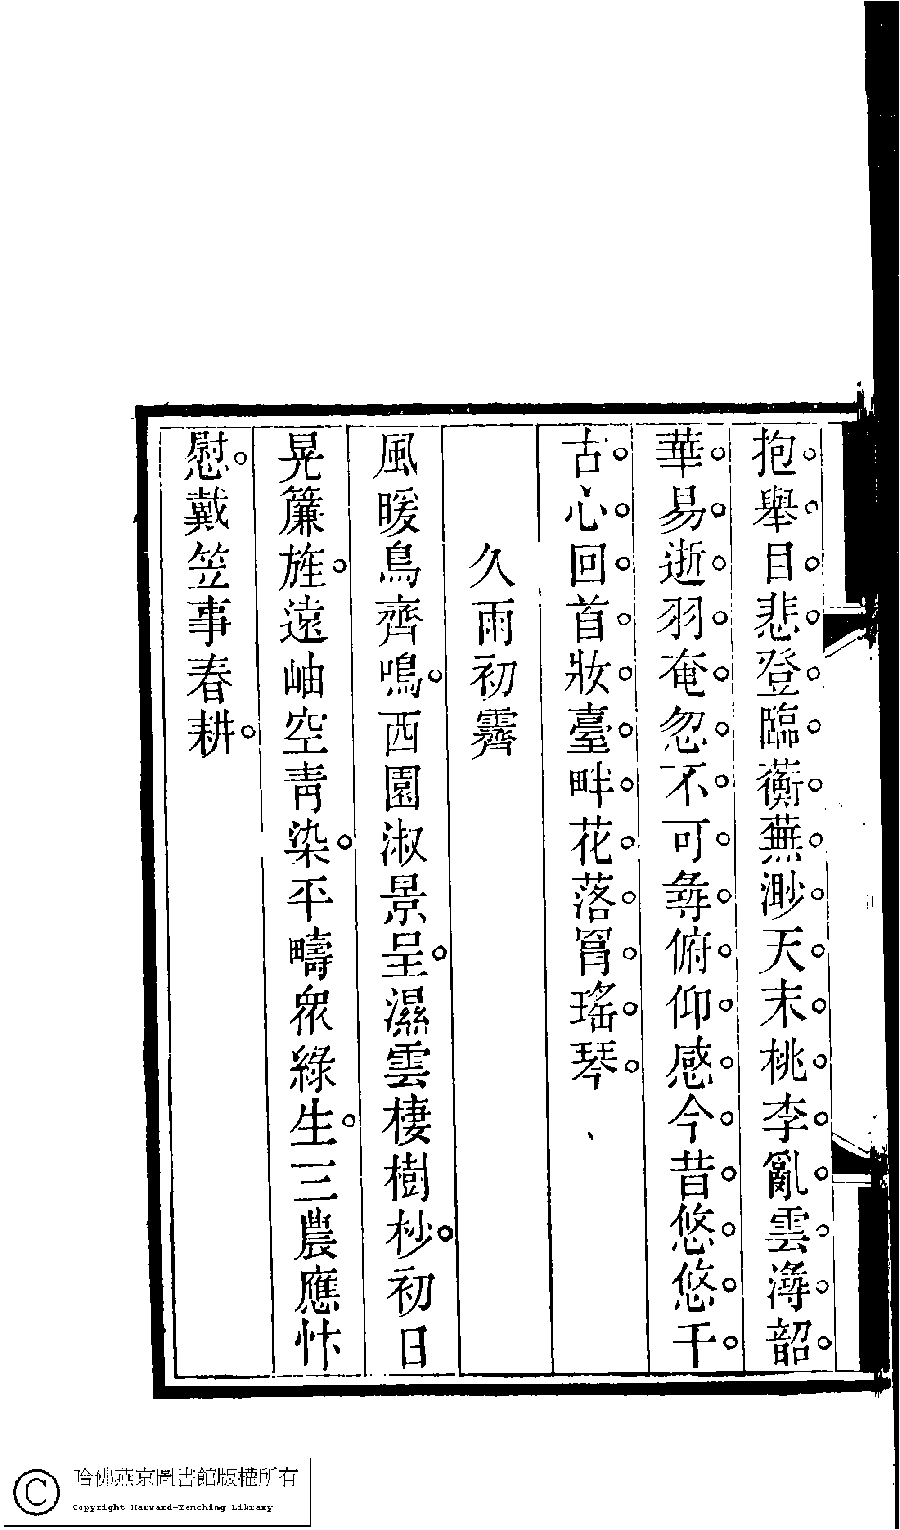 抱舉目悲登臨蘅蕪渺天末桃李亂雲潯韶
華易逝羽奄忽不可尋俯仰感今昔悠悠千
古心回首妝臺畔花落罥瑤琴
久雨初霽
風暖鳥齊鳴西園淑景呈濕雲棲樹杪初日
晃簾旌遠岫空青染平疇衆綠生三農應忭
慰戴笠事春耕
哈佛燕京圖書館版權所有
Copyright Harvard-Yenching Library